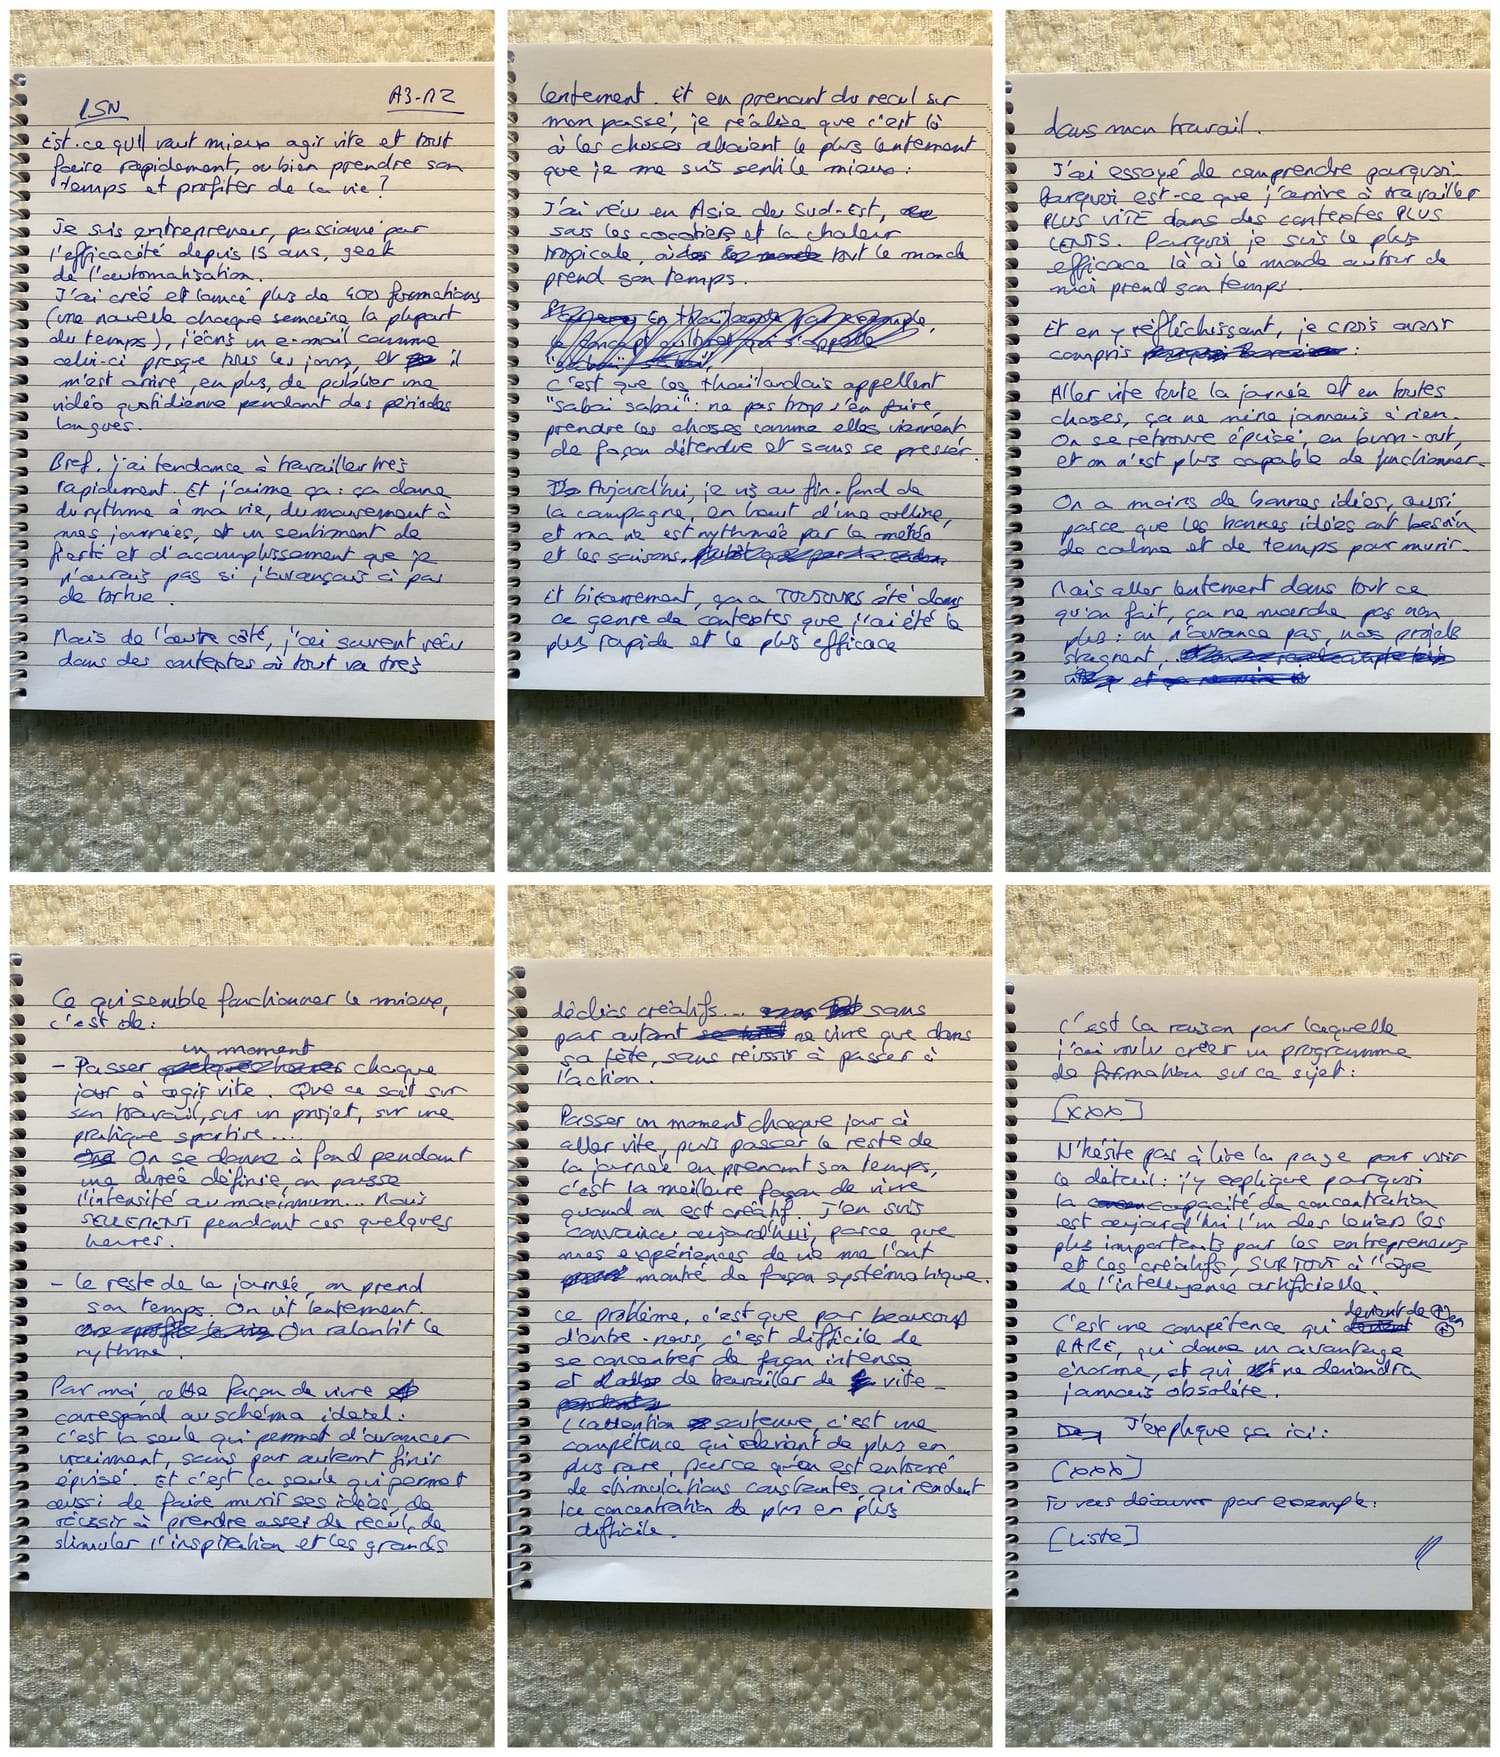 LSN
A3-M2
Est-ce qu'il vaut mieux agir vite et tout
faire rapidement, ou bien prendre son
temps et profiter de la vie ?
Je suis entrepreneur, passionné par
l'efficacité depuis 15 ans, geek
de l'automatisation.
J'ai créé et lancé plus de 400 formations
(une nouvelle chaque semaine la plupart
du temps), j'écris un e-mail comme
celui-ci presque tous les jours, et il
m'est arrivé, en plus, de publier une
vidéo quotidienne pendant des périodes
longues.
Bref, j'ai tendance à travailler très
rapidement. Et j'aime ça : ça donne
du rythme à ma vie, du mouvement à
mes journées, et un sentiment de
fierté et d'accomplissement que je
n'aurais pas si j'avançais à pas
de tortue.
Mais de l'autre côté, j'ai souvent vécu
dans des contextes où tout va très
lentement. Et en prenant du recul sur
mon passé, je réalise que c'est là
où les choses allaient le plus lentement
que je me suis senti le mieux :
J'ai vécu en Asie du Sud-Est,
sous les cocotiers et la chaleur
tropicale, où tout le monde
prend son temps.
En Thaïlande par exemple,
C'est que les thaïlandais appellent
"sabai sabai" : ne pas trop s'en faire,
prendre les choses comme elles viennent
de façon détendue et sans se presser.
Aujourd'hui, je vis au fin-fond de
la campagne, en haut d'une colline,
et ma vie est rythmée par la météo
et les saisons.
Et bizarrement, ça a TOUJOURS été dans
ce genre de contextes que j'ai été le
plus rapide et le plus efficace
dans mon travail.
J'ai essayé de comprendre pourquoi.
Pourquoi est-ce que j'arrive à travailler
PLUS VITE dans des contextes PLUS
LENTS. Pourquoi je suis le plus
efficace là où le monde autour de
moi prend son temps.
Et en y réfléchissant, je crois avoir
compris :
Aller vite toute la journée et en toutes
choses, ça ne mène jamais à rien.
On se retrouve épuisé, en burn-out,
et on n'est plus capable de fonctionner.
On a moins de bonnes idées, aussi,
parce que les bonnes idées ont besoin
de calme et de temps pour murir.
Mais aller lentement dans tout ce
qu'on fait, ça ne marche pas non
plus : on n'avance pas, nos projets
stagnent,
Ce qui semble fonctionner le mieux,
c'est de :
un moment
- Passer chaque
jour à agir vite. Que ce soit sur
son travail, sur un projet, sur une
pratique sportive....
On se donne à fond pendant
une durée définie, on pousse
l'intensité au maximum... Mais
SEULEMENT pendant ces quelques
heures.
- Le reste de la journée, on prend
son temps. On vit lentement.
On ralentit le
rythme.
Par moi, cette façon de vivre
correspond au schéma idéal :
c'est la seule qui permet d'avancer
vraiment, sans pour autant finir
épuisé. Et c'est la seule qui permet
aussi de faire murir ses idées, de
réussir à prendre assez de recul, de
stimuler l'inspiration et les grands
déclics créatifs... sans
pour autant ne vivre que dans
sa tête, sans réussir à passer à
l'action.
Passer un moment chaque jour à
aller vite, puis passer le reste de
la journée en prenant son temps,
c'est la meilleure façon de vivre
quand on est créatif. J'en suis
convaincu aujourd'hui, parce que
mes expériences de vie me l'ont
montré de façon systématique.
Le problème, c'est que pour beaucoup
d'entre-nous, c'est difficile de
se concentrer de façon intense
et de travailler de vite.
L'attention soutenue, c'est une
compétence qui devient de plus en
plus rare, parce qu'on est entouré
de stimulations constantes, qui rendent
la concentration de plus en plus
difficile.
C'est la raison pour laquelle
j'ai voulu créer un programme
de formation sur ce sujet :
[xxx]
N'hésite pas à lire la page pour voir
le détail : j'y explique pourquoi
la capacité de concentration
est aujourd'hui l'un des leviers les
plus importants pour les entrepreneurs
et les créatifs, SURTOUT à l'âge
de l'intelligence artificielle.
devient de (+) en
C'est une compétence qui (+)
RARE, qui donne un avantage
énorme, et qui ne deviendra
jamais obsolète.
J'explique ça ici :
[xxx]
Tu vas découvrir par exemple :
[Liste]